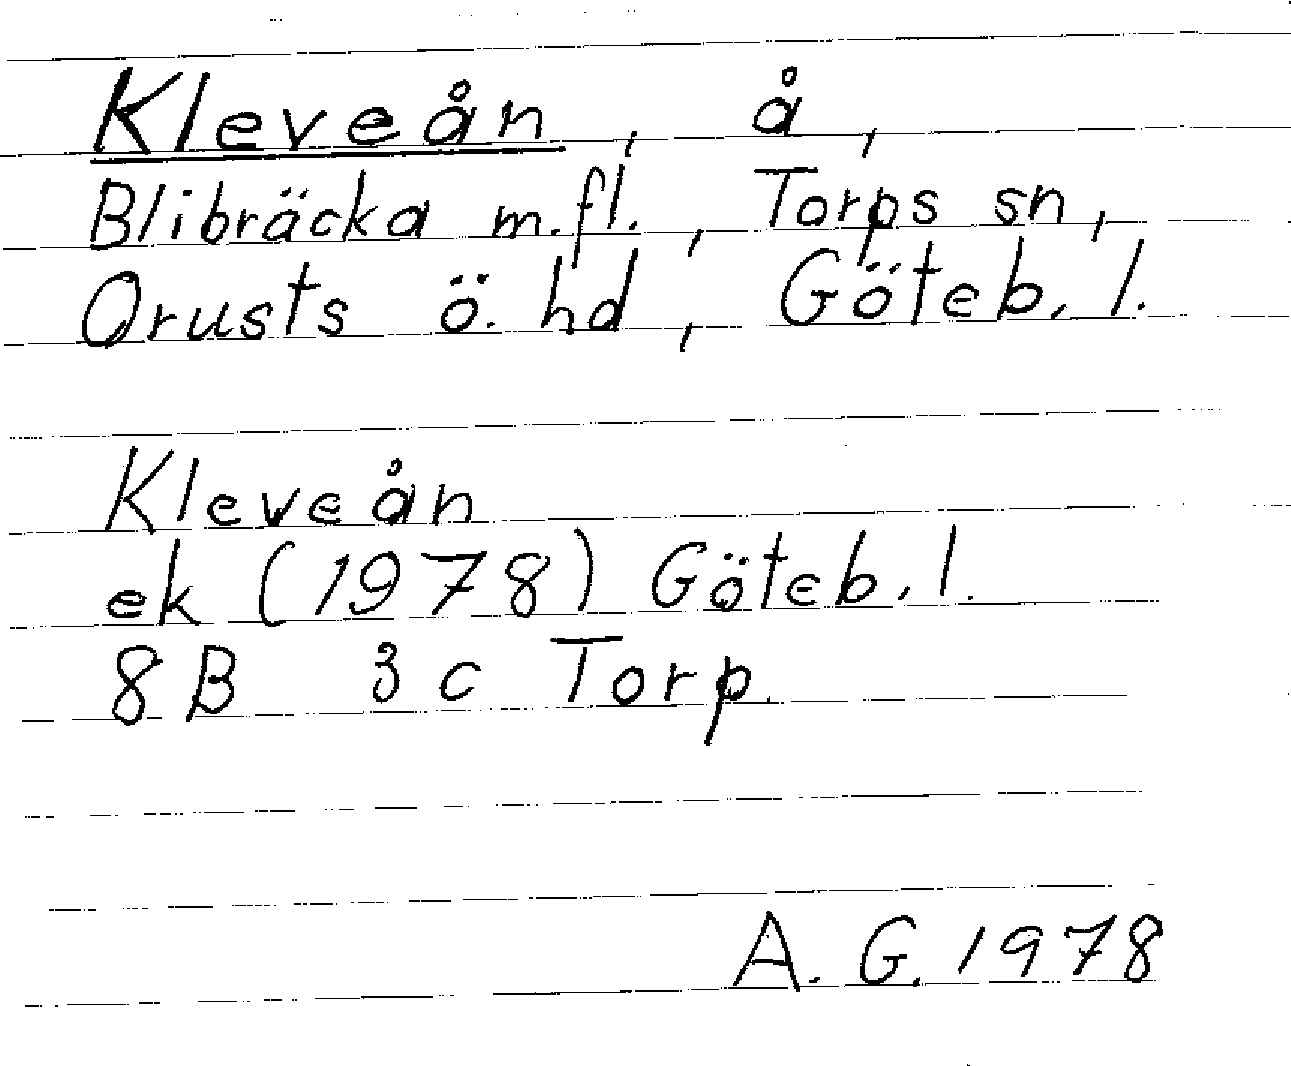 Kleveån, å,
Blibräcka m.fl., Torps sn,
Orusts ö. hd, Göteb. l.
Kleveån
ek (1978) Göteb. l.
8B 3c Torp.
A. G. 1978